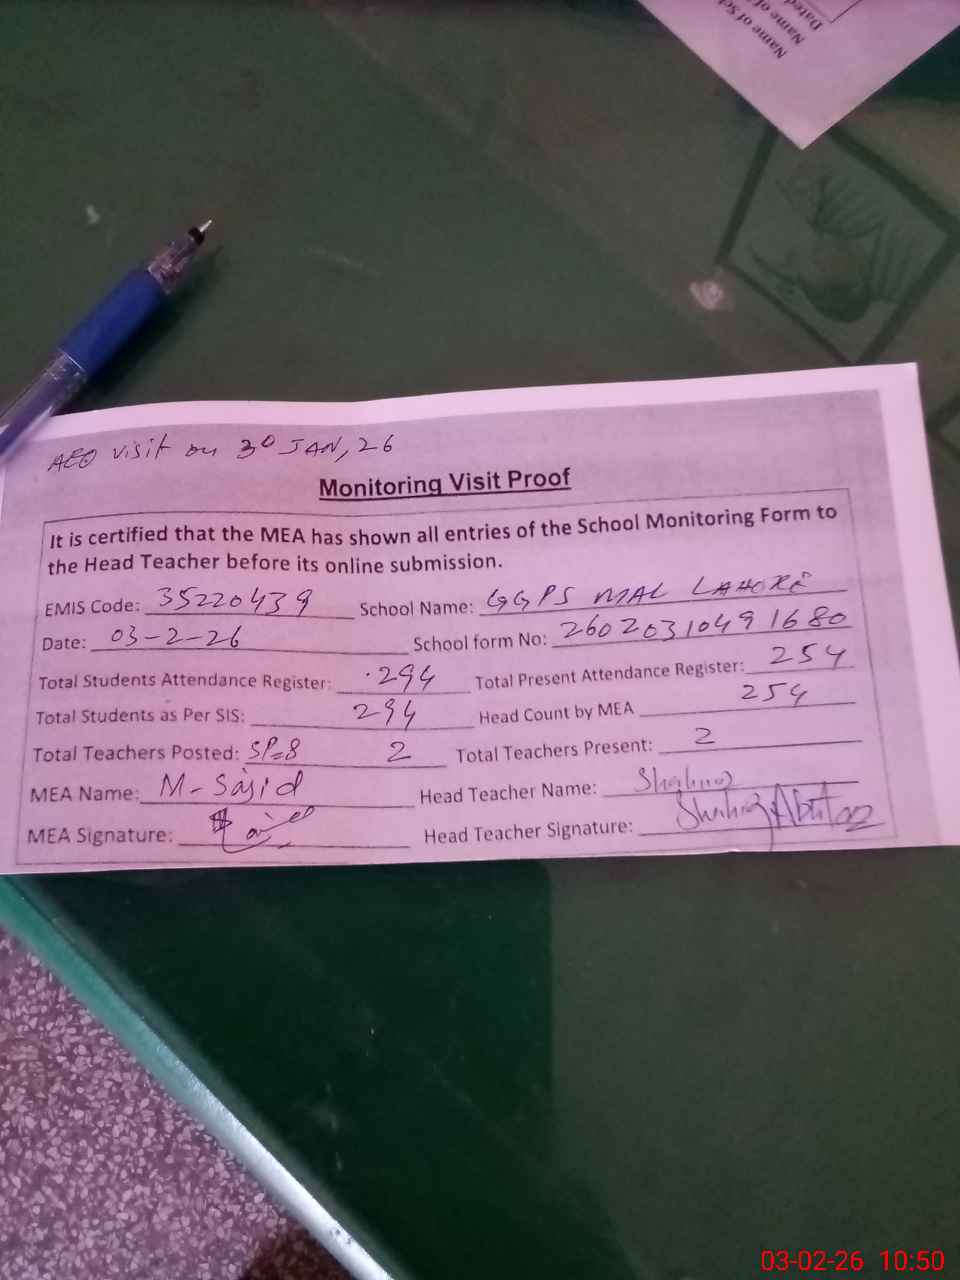 Name of Sch
Name of
Dated
AEO visit on 30 JAN, 26
Monitoring Visit Proof
It is certified that the MEA has shown all entries of the School Monitoring Form to
the Head Teacher before its online submission.
EMIS Code: 35220439 School Name: GGPS MAL LAHORE
Date: 03-2-26 School form No: 2602031049 1680
Total Students Attendance Register: 294 Total Present Attendance Register: 254
Total Students as Per SIS: 294 Head Count by MEA 254
Total Teachers Posted: SP=8 2 Total Teachers Present: 2
MEA Name: M-Sajid Head Teacher Name: Shahnaz
MEA Signature: Head Teacher Signature: Shahnaz
03-02-26 10:50